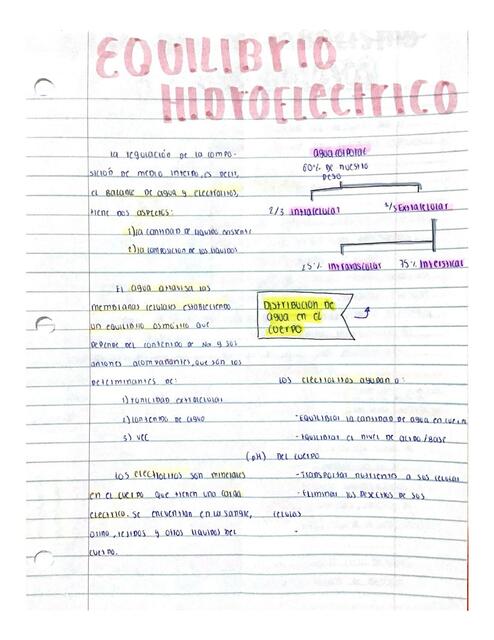 EQUILIBrIO
HIDrOELECTrICO
La regulación de la compo-
sición de medio interno, es decir,
el Balance de agua y electrolitos,
tiene dos aspectos:
1) la cantidad de liquidos existente
2) la composicion de los liquidos
agua corporal
60% de nuestro
peso
2/3 Intracelular
1/3 Extracelular
25% Intravascular
75% Intersticial
El agua atraviesa las
membranas celulares estableciendo
un equilibrio osmótico que
depende del contenido de Na y sus
aniones acompañantes, que son los
determinantes de:
1) Tonicidad extracelular
2) Contenido de agua
3) VEC
Distribución de
agua en el
cuerpo
Los electrolitos son minerales
en el cuerpo que tienen una carga
electrico. se encuentran en la sangre,
orina, tejidos y otros liquidos del
cuerpo.
Los electrolitos ayudan a:
-Equilibrar la cantidad de agua en cuerpo
-Equilibrar el nivel de acido/base
(pH) del cuerpo
-Transportar nutrientes a sus celulas
-Eliminar los desechos de sus
celulas
-